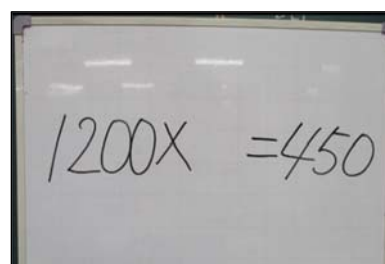 1200X =450